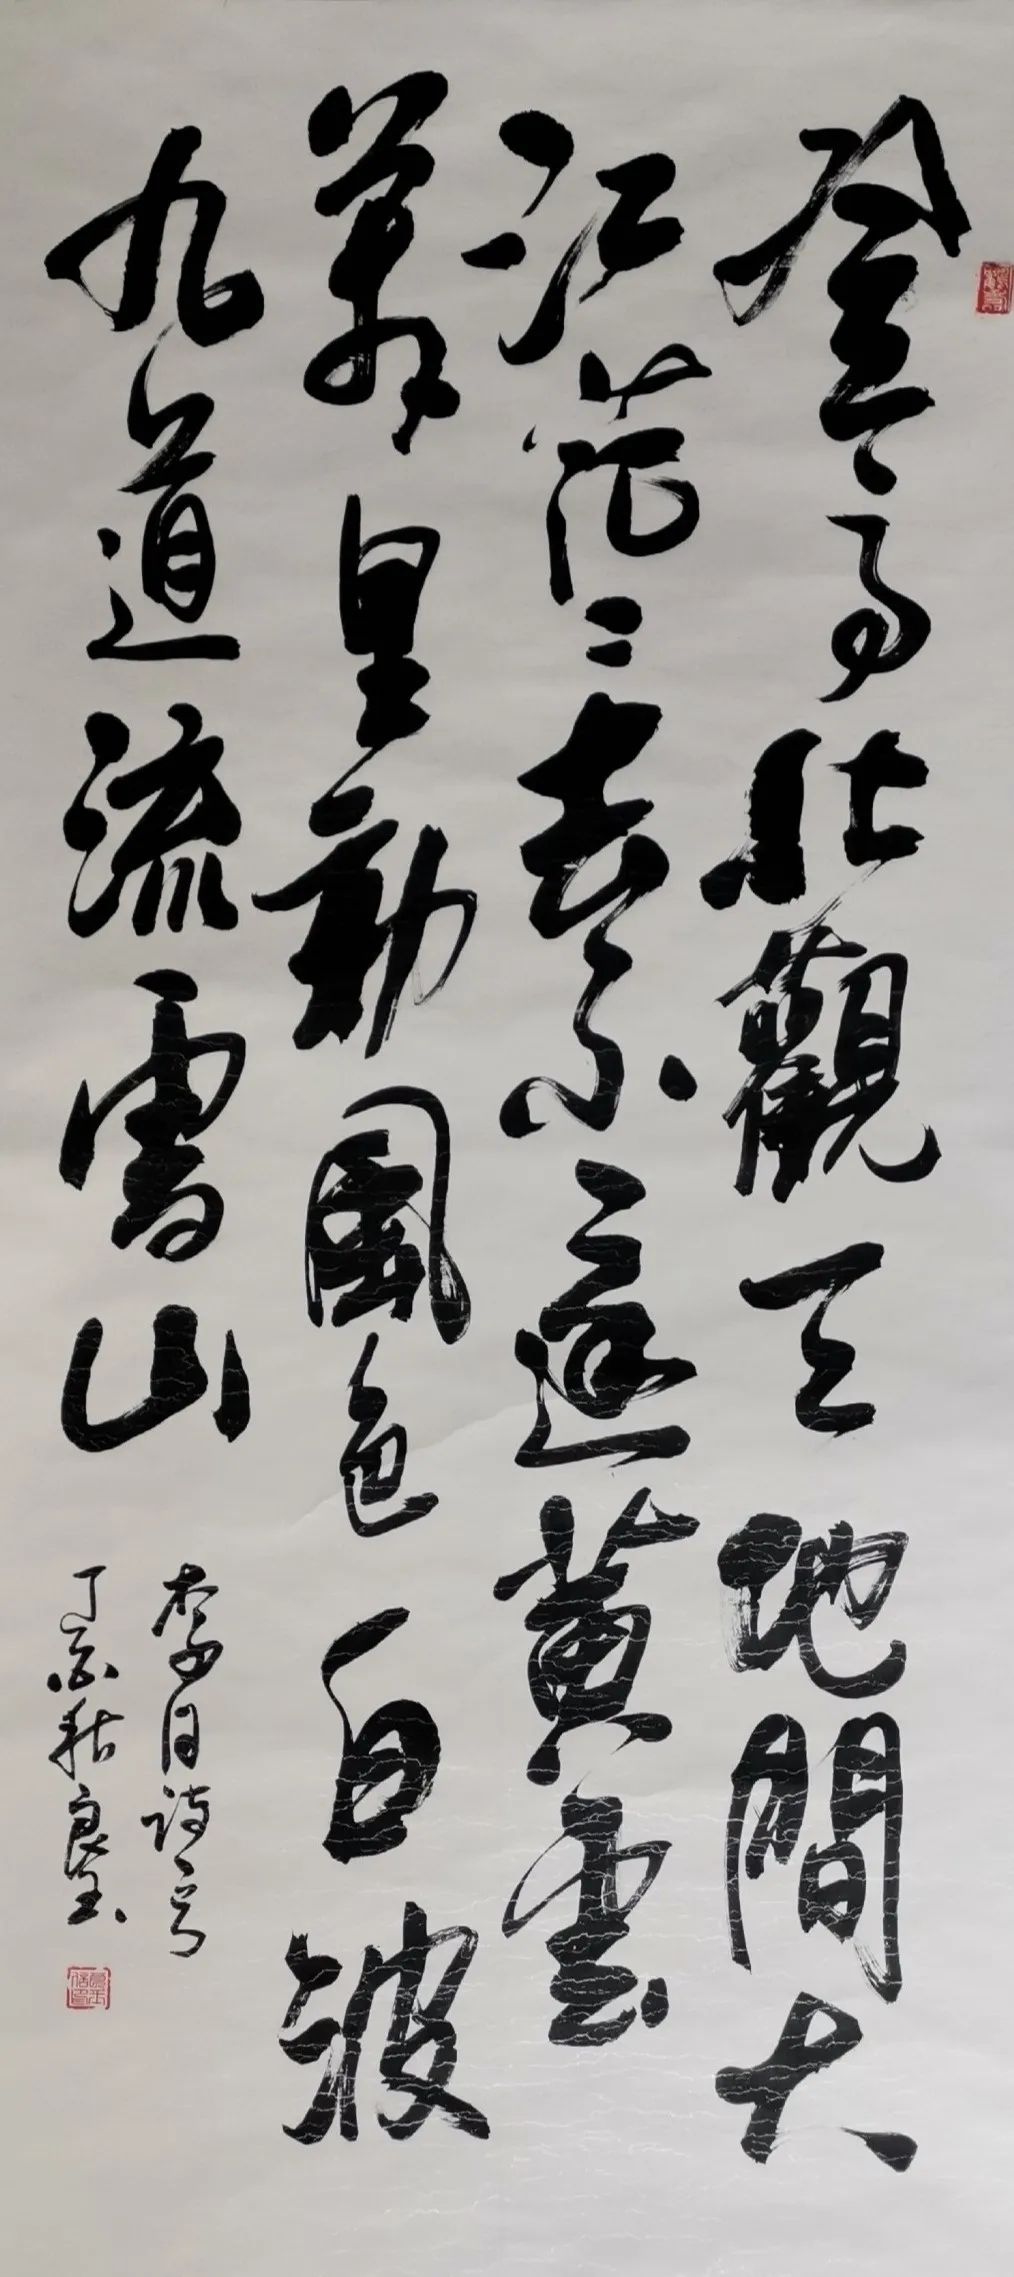 登高壯觀天地間大
江茫〻去不還黃雲
萬里動風色白波
九道流雪山
李白詩
丁酉秋良玉